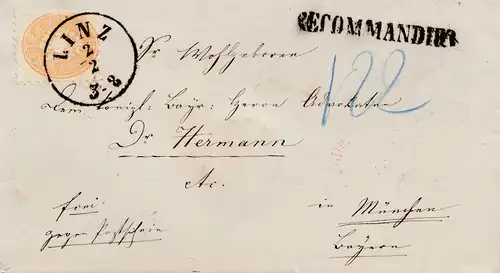 LINZ
2
2
3-8
RECOMMANDIRT
Sr Wohlgeboren
122
Dem königl: Bayr: Herrn Advokaten
Dr Hermann
etc.
frei
gegen Postschein
in München
Bayern